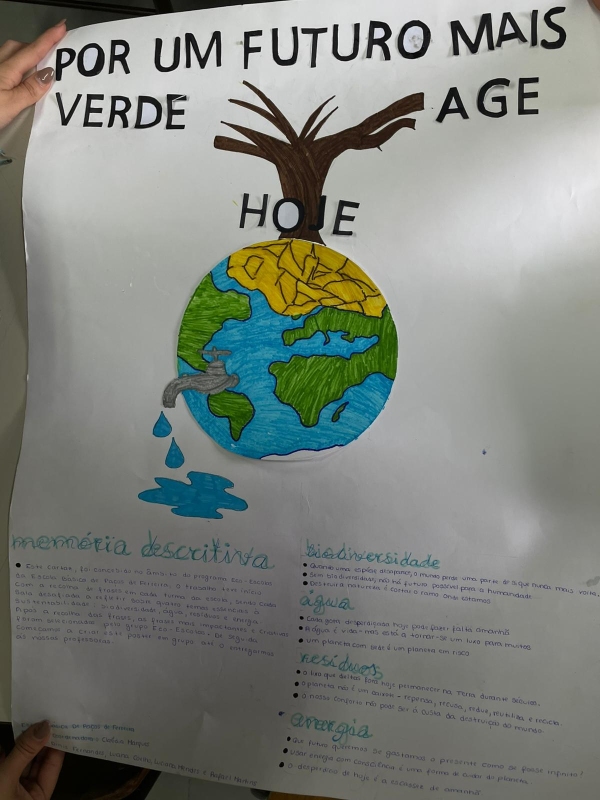 POR UM FUTURO MAIS
VERDE AGE
HOJE
memória descritiva
• Este cartaz, foi concebido no âmbito do programa Eco-Escolas
da Escola Básica de Paços de Ferreira. O trabalho teve início
com a recolha de frases em cada turma da escola, sendo cada
sustentabilidade: biodiversidade, água, resíduos e energia.
Após a recolha das frases, as frases mais importantes e criativas
foram selecionadas pelo grupo Eco-Escolas. De seguida
começamos a criar este poster em grupo até o entregarmos
às nossas professoras.
biodiversidade
• Quando uma espécie desaparece, o mundo perde uma parte de si que nunca mais volta.
• Sem biodiversidade, não há futuro possível para a humanidade.
• Destruir a natureza é cortar o ramo onde estamos
água
• Cada gota desperdiçada hoje pode fazer falta amanhã
• A água é vida - mas está a tornar-se um luxo para muitos
• um planeta com sede é um planeta em risco
resíduos
• o lixo que deitas fora hoje permanecer na Terra durante séculos.
• o planeta não é um caixote - repensa, recusa, reduz, reutiliza e recicla.
• o nosso conforto não pode ser à custa da destruição do mundo.
energia
• Que futuro queremos se gastamos o presente como se fosse infinito?
• Usar energia com consciência é uma forma de cuidar do planeta
• o desperdício de hoje é a escassez de amanhã
de Paços de Ferreira